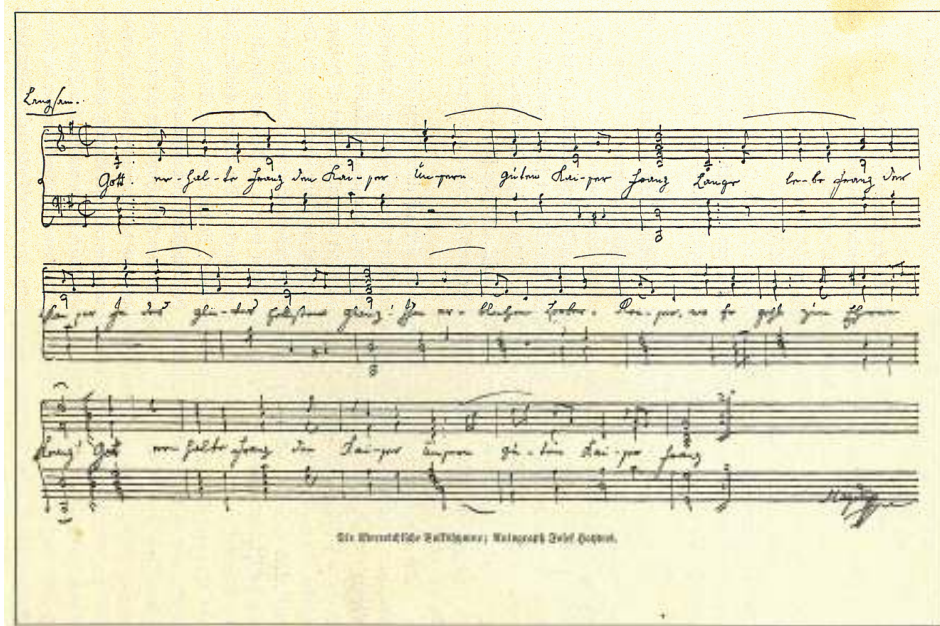 Langsam.
Gott. er-hal-te Franz den Kai-ser Unsern guten Kai-ser Franz Lange le-be Franz der
Kai-ser In des glü-ckes hellsten Glanz! Ihm er-blühen Lorber-Rei-ser, wo Er geht zum Ehren
Kranz! Gott erhalte Franz den Kai-ser Unsern gu-ten Kai-ser Franz
Haydn
Die österreichische Volkshymne; Autograph Josef Haydns.